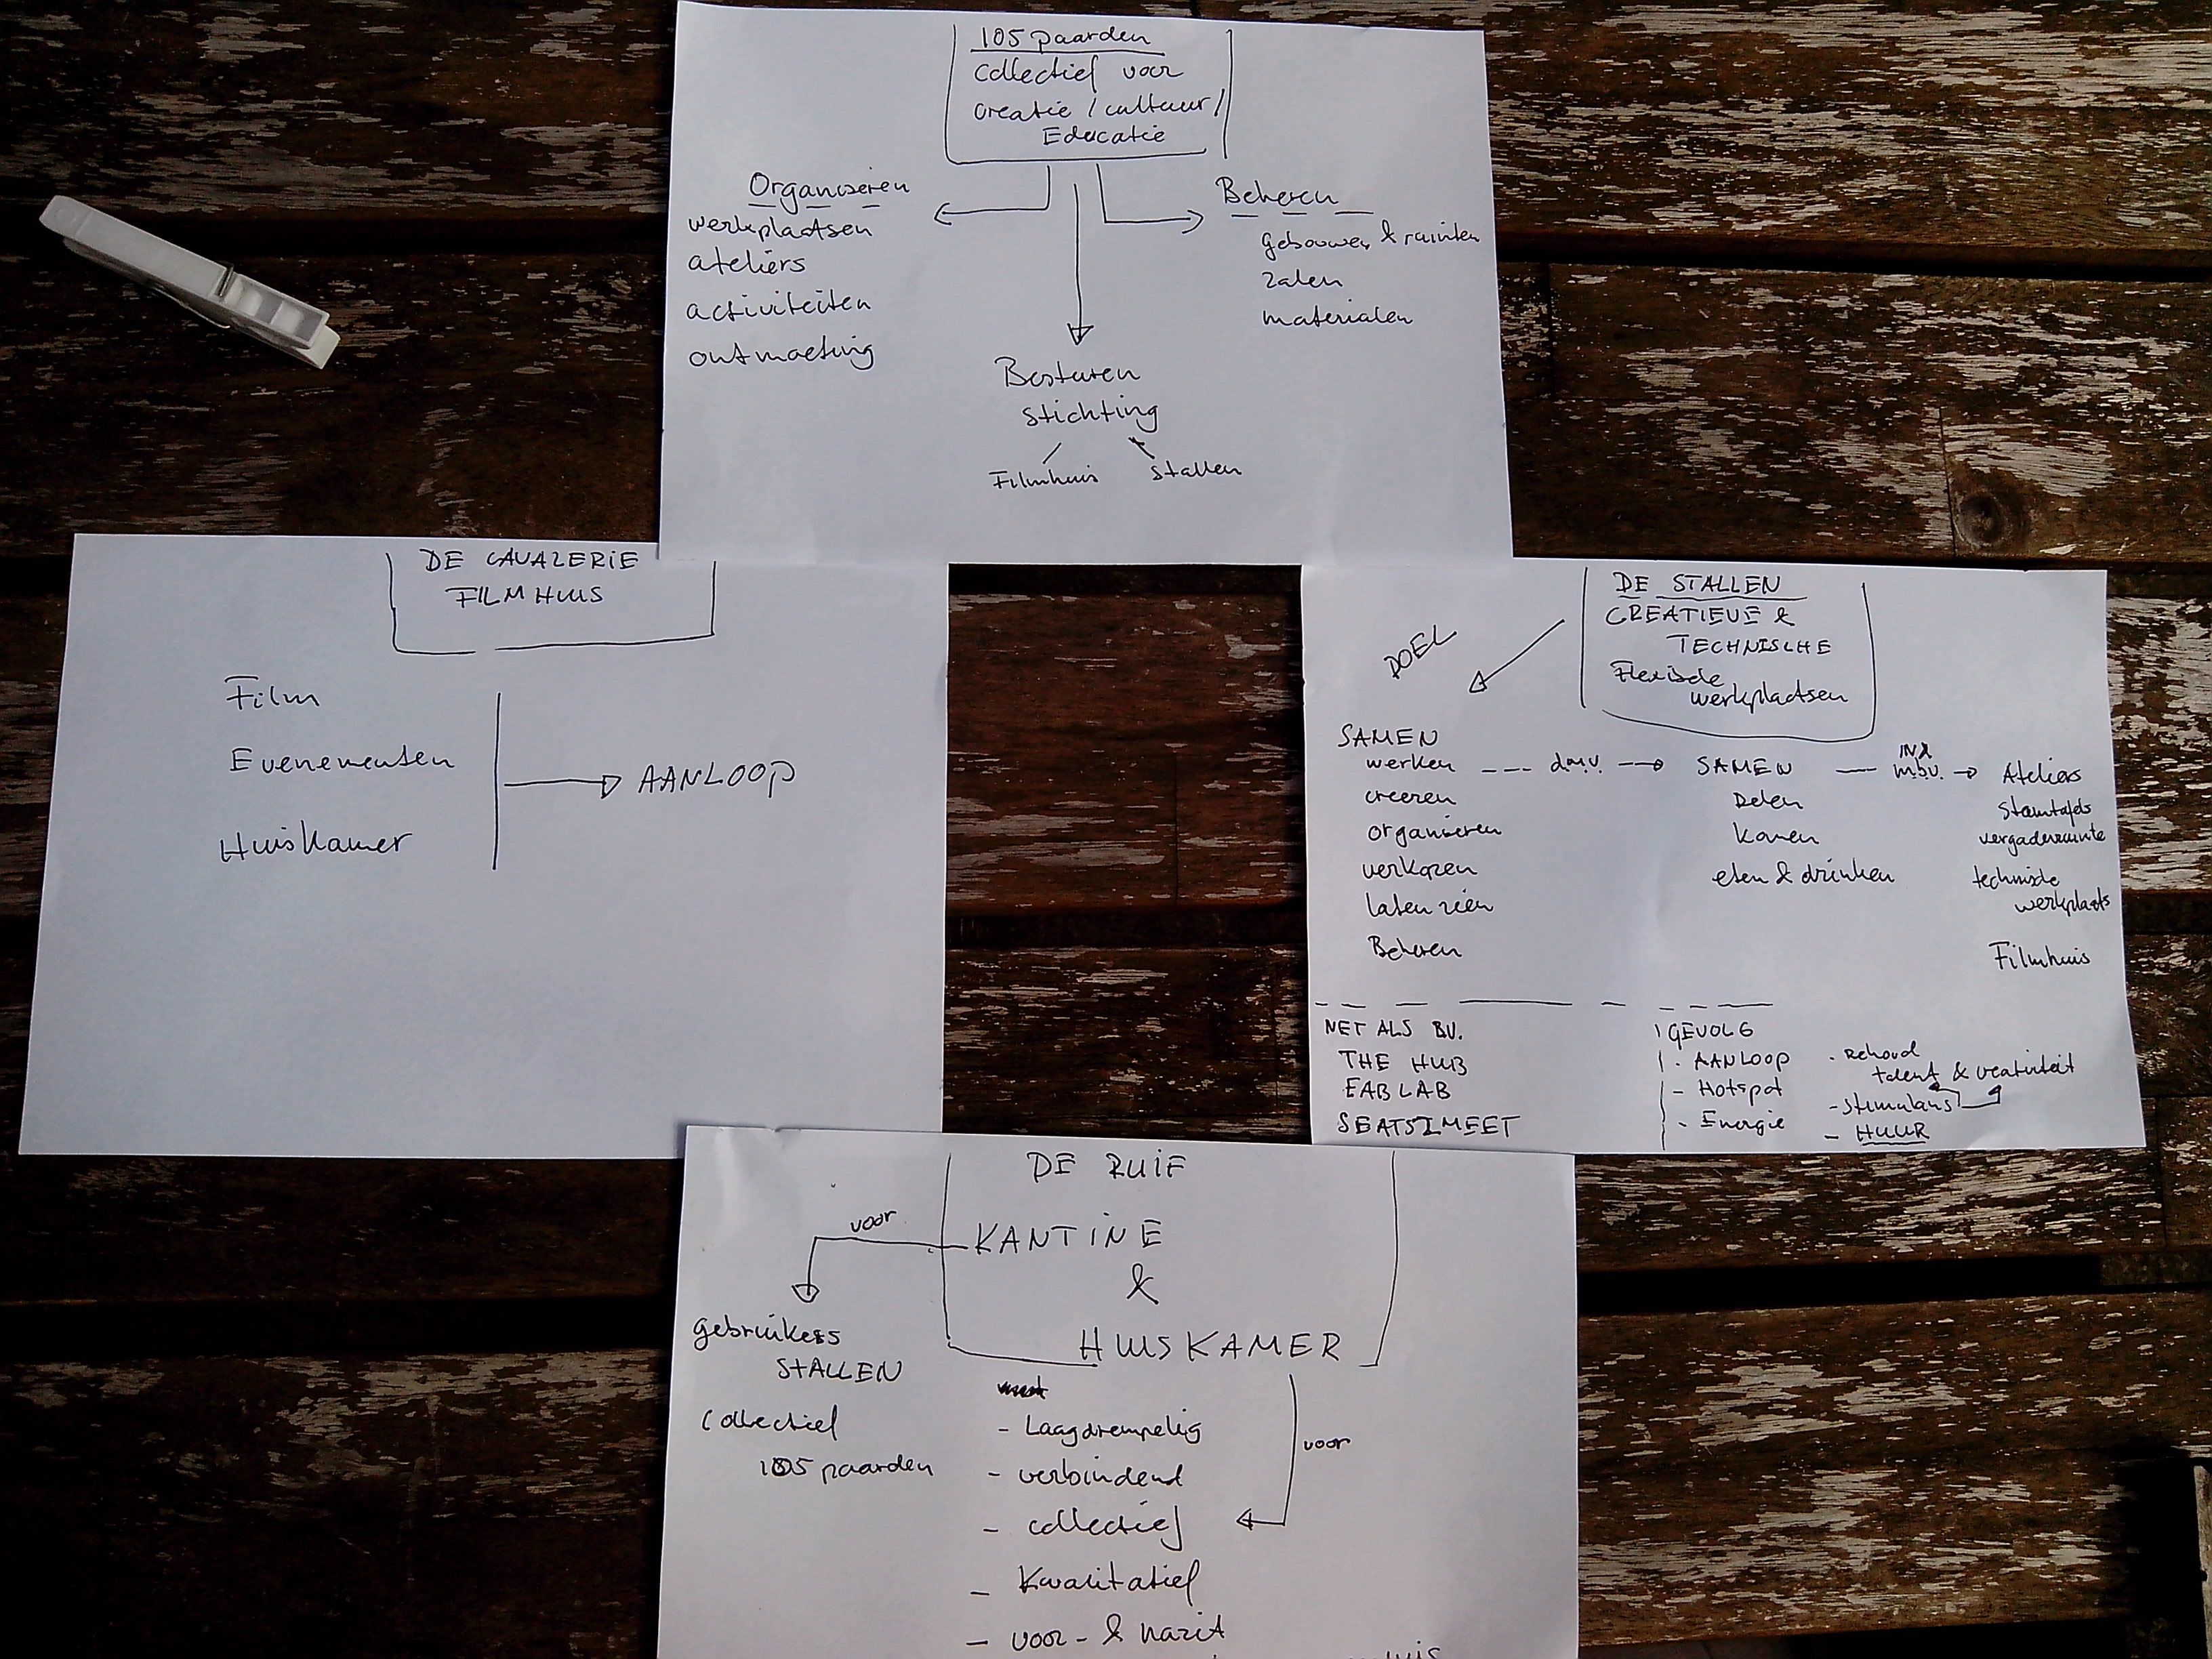 105 paarden
Collectief voor
Creatie / cultuur /
Educatie
Organiseren
werkplaatsen
ateliërs
activiteiten
ontmoeting
Beheren
gebouwen & ruimten
zalen
materialen
Besturen
stichting
Filmhuis
stallen
DE CAVALERIE
FILMHUIS
Film
Evenementen
Huiskamer
AANLOOP
DE STALLEN
CREATIEVE &
TECHNISCHE
Flexibele
werkplaatsen
DOEL
SAMEN
werken
d.m.v.
creeren
organiseren
verkopen
laten zien
Beheren
SAMEN
Delen
Komen
eten & drinken
IN &
m.b.v.
Ateliers
Stamtafels
vergaderruimte
technische
werkplaats
Filmhuis
NET ALS BV.
THE HUB
FABLAB
SEATS2MEET
GEVOLG
- AANLOOP
- Hotspot
- Energie
- Behoud
talent & creativiteit
- stimulans
- HUUR
DE RUIF
KANTINE
&
HUISKAMER
voor
gebruikers
STALLEN
Collectief
105 paarden
- Laagdrempelig
- verbindend
- collectief
- Kwalitatief
- voor- & nazit
voor